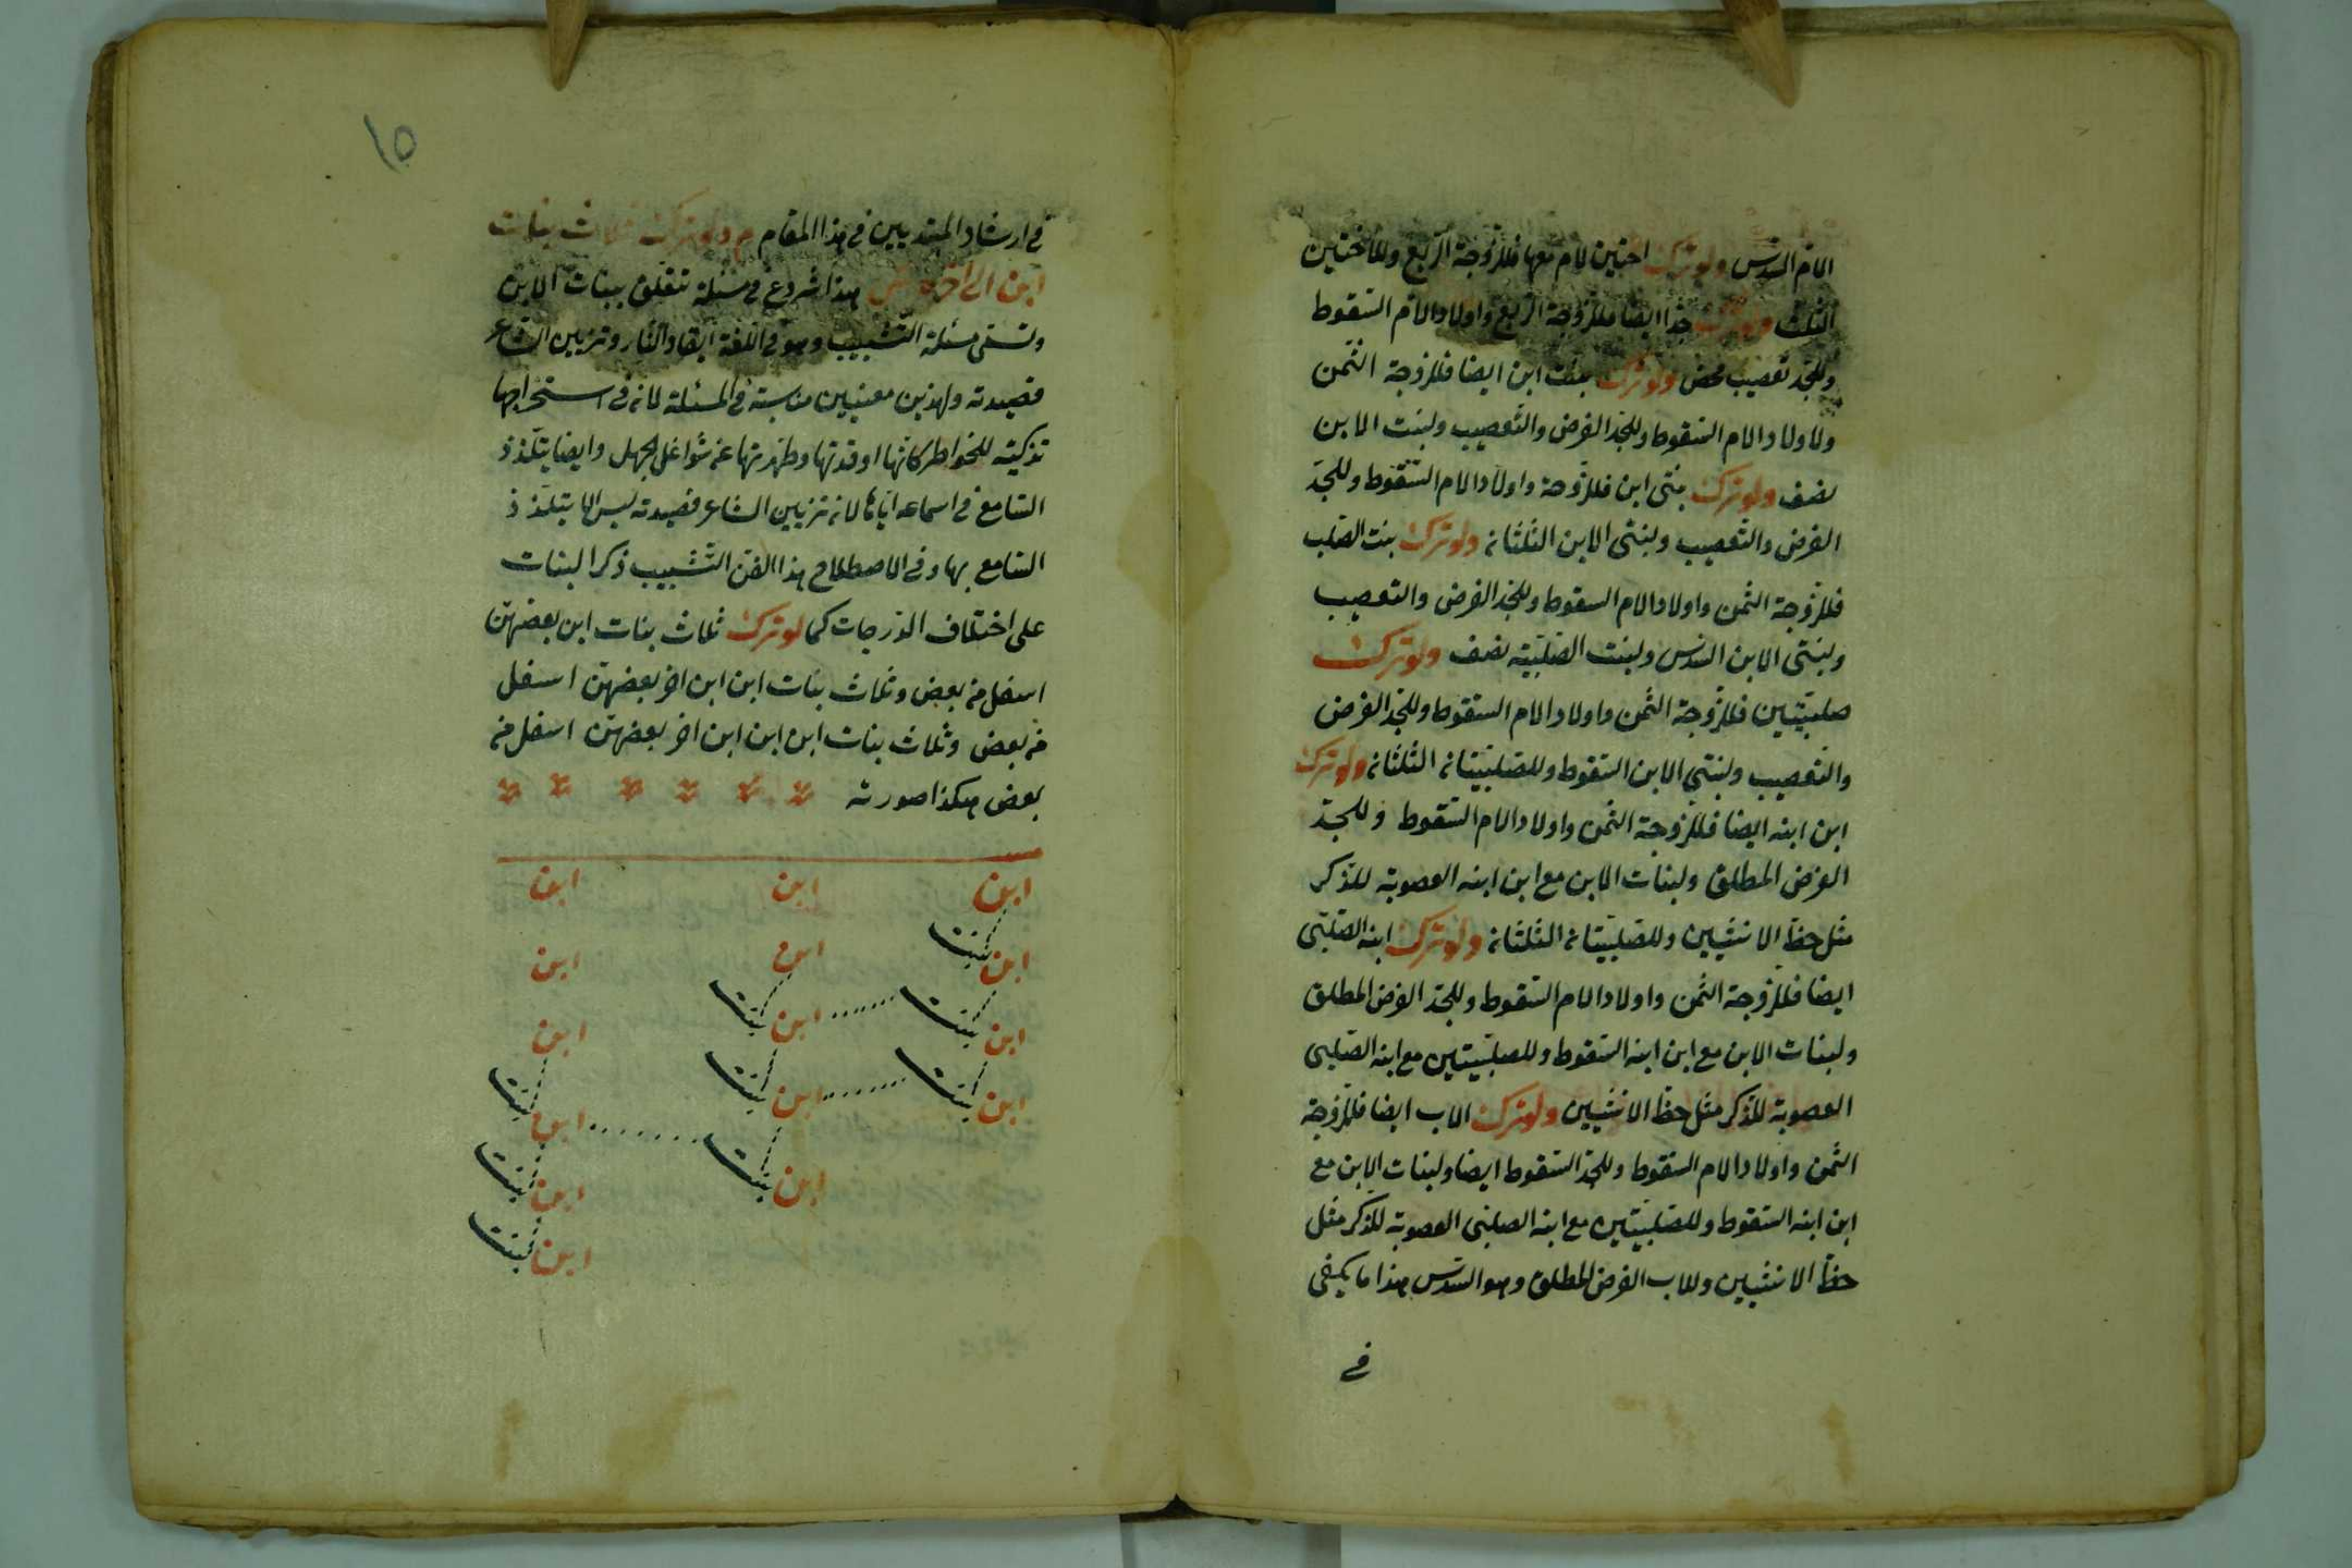 الام السدس ولو ترك اختين لام معها فللزوجة الربع وللاختين
الثلث ولو ترك جدا ايضا فللزوجة الربع واولاد الام السقوط
وللجد تعصيب محض ولو ترك بنت ابن ايضا فللزوجة الثمن
ولاولاد الام السقوط وللجد الفرض والتعصيب ولبنت الابن
نصف ولو ترك بنتى ابن فللزوجة واولاد الام السقوط وللجد
الفرض والتعصيب ولبنتى الابن الثلثان ولو ترك بنت الصلب
فللزوجة الثمن واولاد الام السقوط وللجد الفرض والتعصيب
ولبنتى الابن السدس ولبنت الصلبية نصف ولو ترك
صلبيتين فللزوجة الثمن واولاد الام السقوط وللجد الفرض
والتعصيب ولبنتي الابن السقوط وللصلبيتان الثلثان ولو ترك
ابن ابنه ايضا فللزوجة الثمن واولاد الام السقوط وللجد
الفرض المطلق ولبنات الابن مع ابن ابنه العصوبة للذكر
مثل حظ الانثيين وللصلبيتان الثلثان ولو ترك ابنه الصلبى
ايضا فللزوجة الثمن واولاد الام السقوط وللجد الفرض المطلق
ولبنات الابن مع ابن ابنه السقوط وللصلبيتين مع ابنه الصلبى
العصوبة للذكر مثل حظ الانثيين ولو ترك الاب ايضا فللزوجة
الثمن واولاد الام السقوط وللجد السقوط ايضا ولبنات الابن مع
ابن ابنه السقوط وللصلبيتين مع ابنه الصلبى العصوبة للذكر مثل
حظ الانثيين وللاب الفرض المطلق وهو السدس هذا ما يكفى
فى
١٥
فى ارشاد المبتديين فى هذا المقام م ولو ترك ثلاث بنات
ابن الى اخره ش هذا شروع فى مسئلة تتعلق ببنات الابن
وتسمى مسئلة التشبيب وهو فى اللغة ايقاد النار وتزيين الشاعر
قصيدته ولهذين معنيين مناسبة فى المسئلة لانه فى استخراجها
تذكية للخواطر كانها اوقدتها وطهرتها عن شواغل الجهل وايضا يتلذذ
السامع فى اسماعه اياها لانه تزيين الشاعر قصيدته ليس الا يتلذذ
السامع بها وفى الاصطلاح هذا الفن التشبيب ذكر البنات
على اختلاف الدرجات كما لو ترك ثلاث بنات ابن بعضهن
اسفل من بعض وثلاث بنات ابن ابن اخر بعضهن اسفل
من بعض وثلاث بنات ابن ابن ابن اخر بعضهن اسفل من
بعض هكذا صورته
ابن ابن ابن
بنت
ابن ابن ابن
بنت بنت
ابن ابن ابن
بنت بنت بنت
ابن ابن ابن
بنت بنت
ابن ابن
بنت
ابن